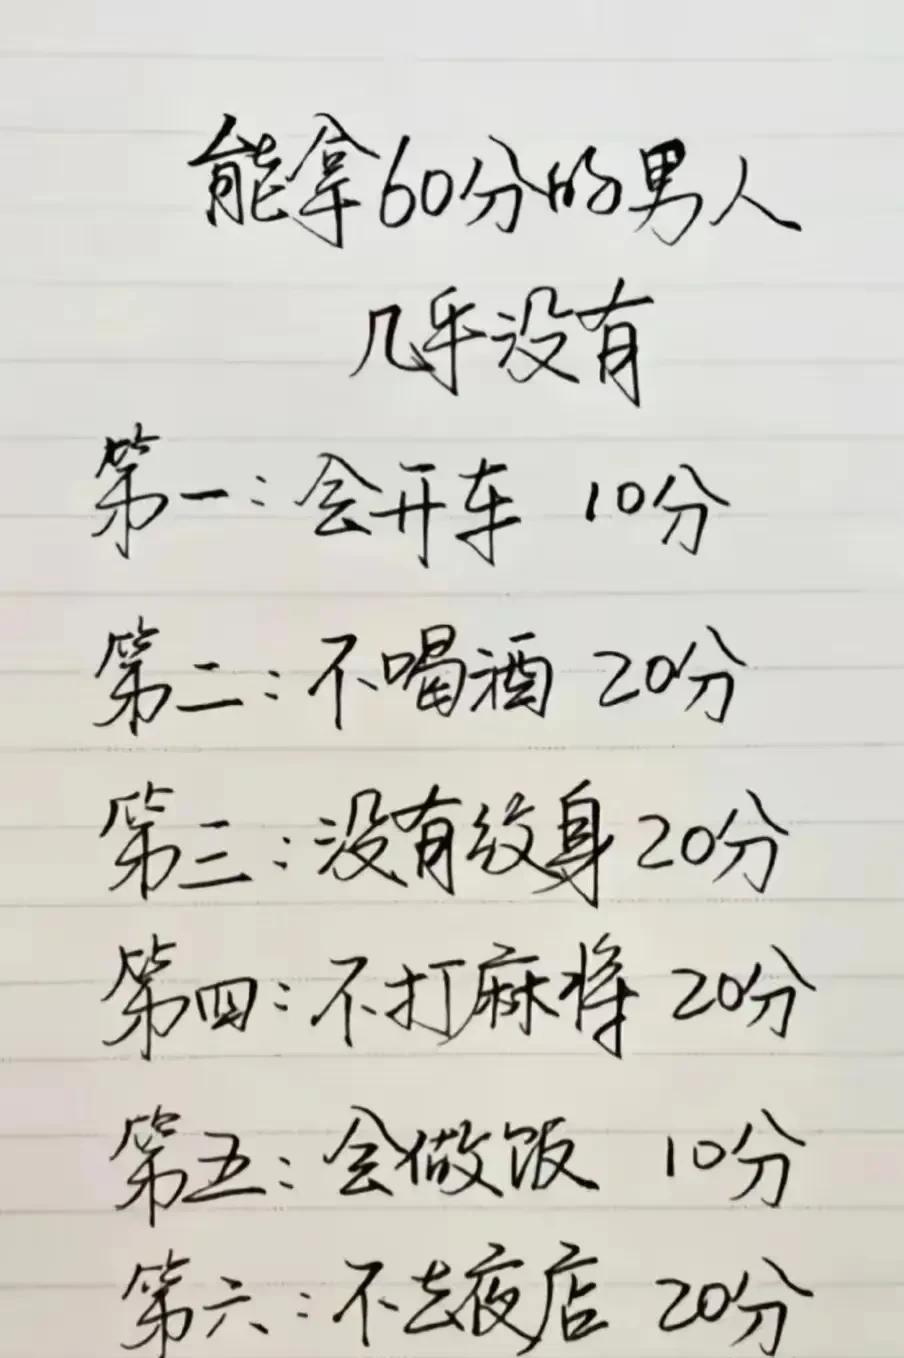 能拿60分的男人
几乎没有
第一:会开车 10分
第二:不喝酒 20分
第三:没有纹身 20分
第四:不打麻将 20分
第五:会做饭 10分
第六:不去夜店 20分